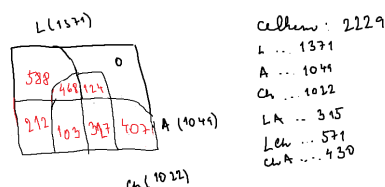 L (1371)
0
588
468 124
212 103 327 407 A (1049)
Ch (1022)
celkem : 2229
L ... 1371
A ... 1049
Ch ... 1022
LA .. 315
Lch ... 571
chA .... 430